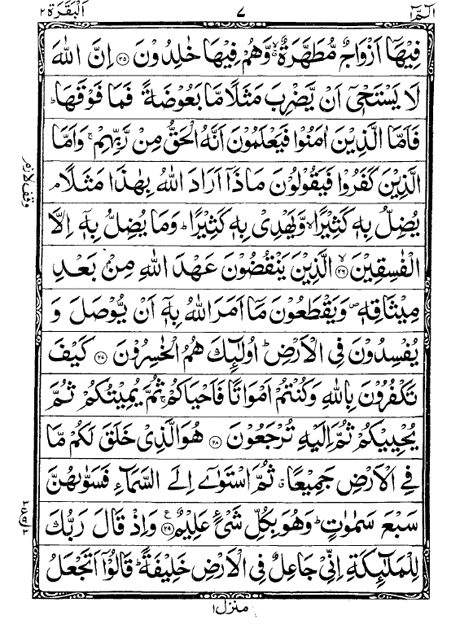 الٓمّٓ ١
٧
اَلْبَقَرَة ٢
فِيْهَآ اَزْوَاجٌ مُّطَهَّرَةٌ ۙ وَّهُمْ فِيْهَا خٰلِدُوْنَ ﴿۲۵﴾ اِنَّ اللّٰهَ
لَا يَسْتَحْىٖۤ اَنْ يَّضْرِبَ مَثَلًا مَّا بَعُوْضَةً فَمَا فَوْقَهَا ؕ
فَاَمَّا الَّذِيْنَ اٰمَنُوْا فَيَعْلَمُوْنَ اَنَّهُ الْحَقُّ مِنْ رَّبِّهِمْ ۚ وَاَمَّا
الَّذِيْنَ كَفَرُوْا فَيَقُوْلُوْنَ مَاذَآ اَرَادَ اللّٰهُ بِهٰذَا مَثَلًا ۘ
يُضِلُّ بِهٖ كَثِيْرًا ۙ وَّيَهْدِىْ بِهٖ كَثِيْرًا ؕ وَمَا يُضِلُّ بِهٖۤ اِلَّا
الْفٰسِقِيْنَ ۙ ﴿۲۶﴾ الَّذِيْنَ يَنْقُضُوْنَ عَهْدَ اللّٰهِ مِنْۢ بَعْدِ
مِيْثَاقِهٖ ۪ وَيَقْطَعُوْنَ مَآ اَمَرَ اللّٰهُ بِهٖۤ اَنْ يُّوْصَلَ وَ
يُفْسِدُوْنَ فِى الْاَرْضِ ؕ اُولٰٓئِكَ هُمُ الْخٰسِرُوْنَ ﴿۲۷﴾ كَيْفَ
تَكْفُرُوْنَ بِاللّٰهِ وَكُنْتُمْ اَمْوَاتًا فَاَحْيَاكُمْ ۚ ثُمَّ يُمِيْتُكُمْ ثُمَّ
يُحْيِيْكُمْ ثُمَّ اِلَيْهِ تُرْجَعُوْنَ ﴿۲۸﴾ هُوَ الَّذِىْ خَلَقَ لَكُمْ مَّا
فِى الْاَرْضِ جَمِيْعًا ۗ ثُمَّ اسْتَوٰٓى اِلَى السَّمَآءِ فَسَوّٰىهُنَّ
سَبْعَ سَمٰوٰتٍ ؕ وَهُوَ بِكُلِّ شَىْءٍ عَلِيْمٌ ﴿۲۹﴾ وَاِذْ قَالَ رَبُّكَ
لِلْمَلٰٓئِكَةِ اِنِّىْ جَاعِلٌ فِى الْاَرْضِ خَلِيْفَةً ؕ قَالُوْٓا اَتَجْعَلُ
وقف لازم
منزل ۱